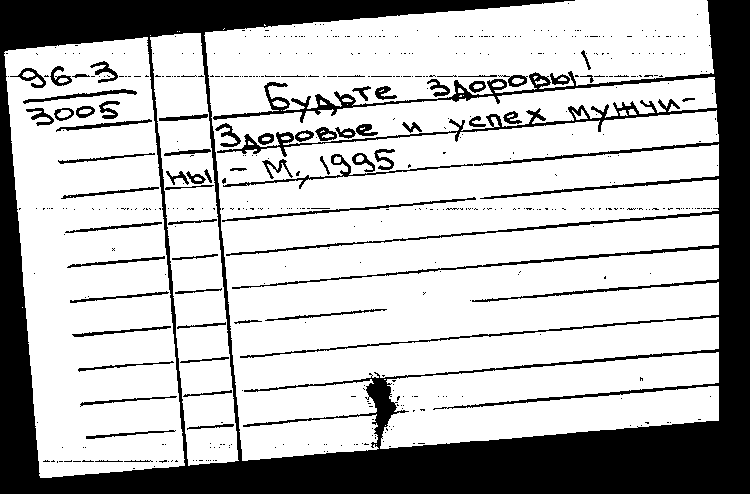 96-3
3005
Будьте здоровы!
Здоровье и успех мужчи-
ны. - М., 1995.